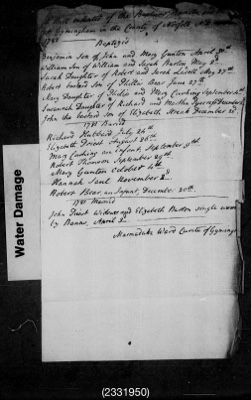 A Bill indented of the
for Gymingham in the County of Norfolk A.D.
1785
Baptized
Benjamin Son of John and Mary Gunton April 30th
William Son of William and Sarah Bartey May 8th
Sarah Daughter of Robert and Sarah May 27th
Robert bastard Son of Phillis Bear June 27th
Mary Daughter of Philip and Mary Cushing September
Susannah Daughter of Richard and Martha December
John the bastard Son of Elizabeth December
1785 Buried
Richard Hubbard July 24th
Elizabeth Priest August 26th
Mary Cushing an Infant September 9th
Robert Thomson September 29th
Mary Gunton October 4th
Hannah Saul November 8
Robert Bear, an Infant, December 20th
1785 Married
John Priest Widower and Elizabeth Button single woman
by Banns, April 3
Marmaduke Ward Curate of Gymingham
Water Damage
(2331950)